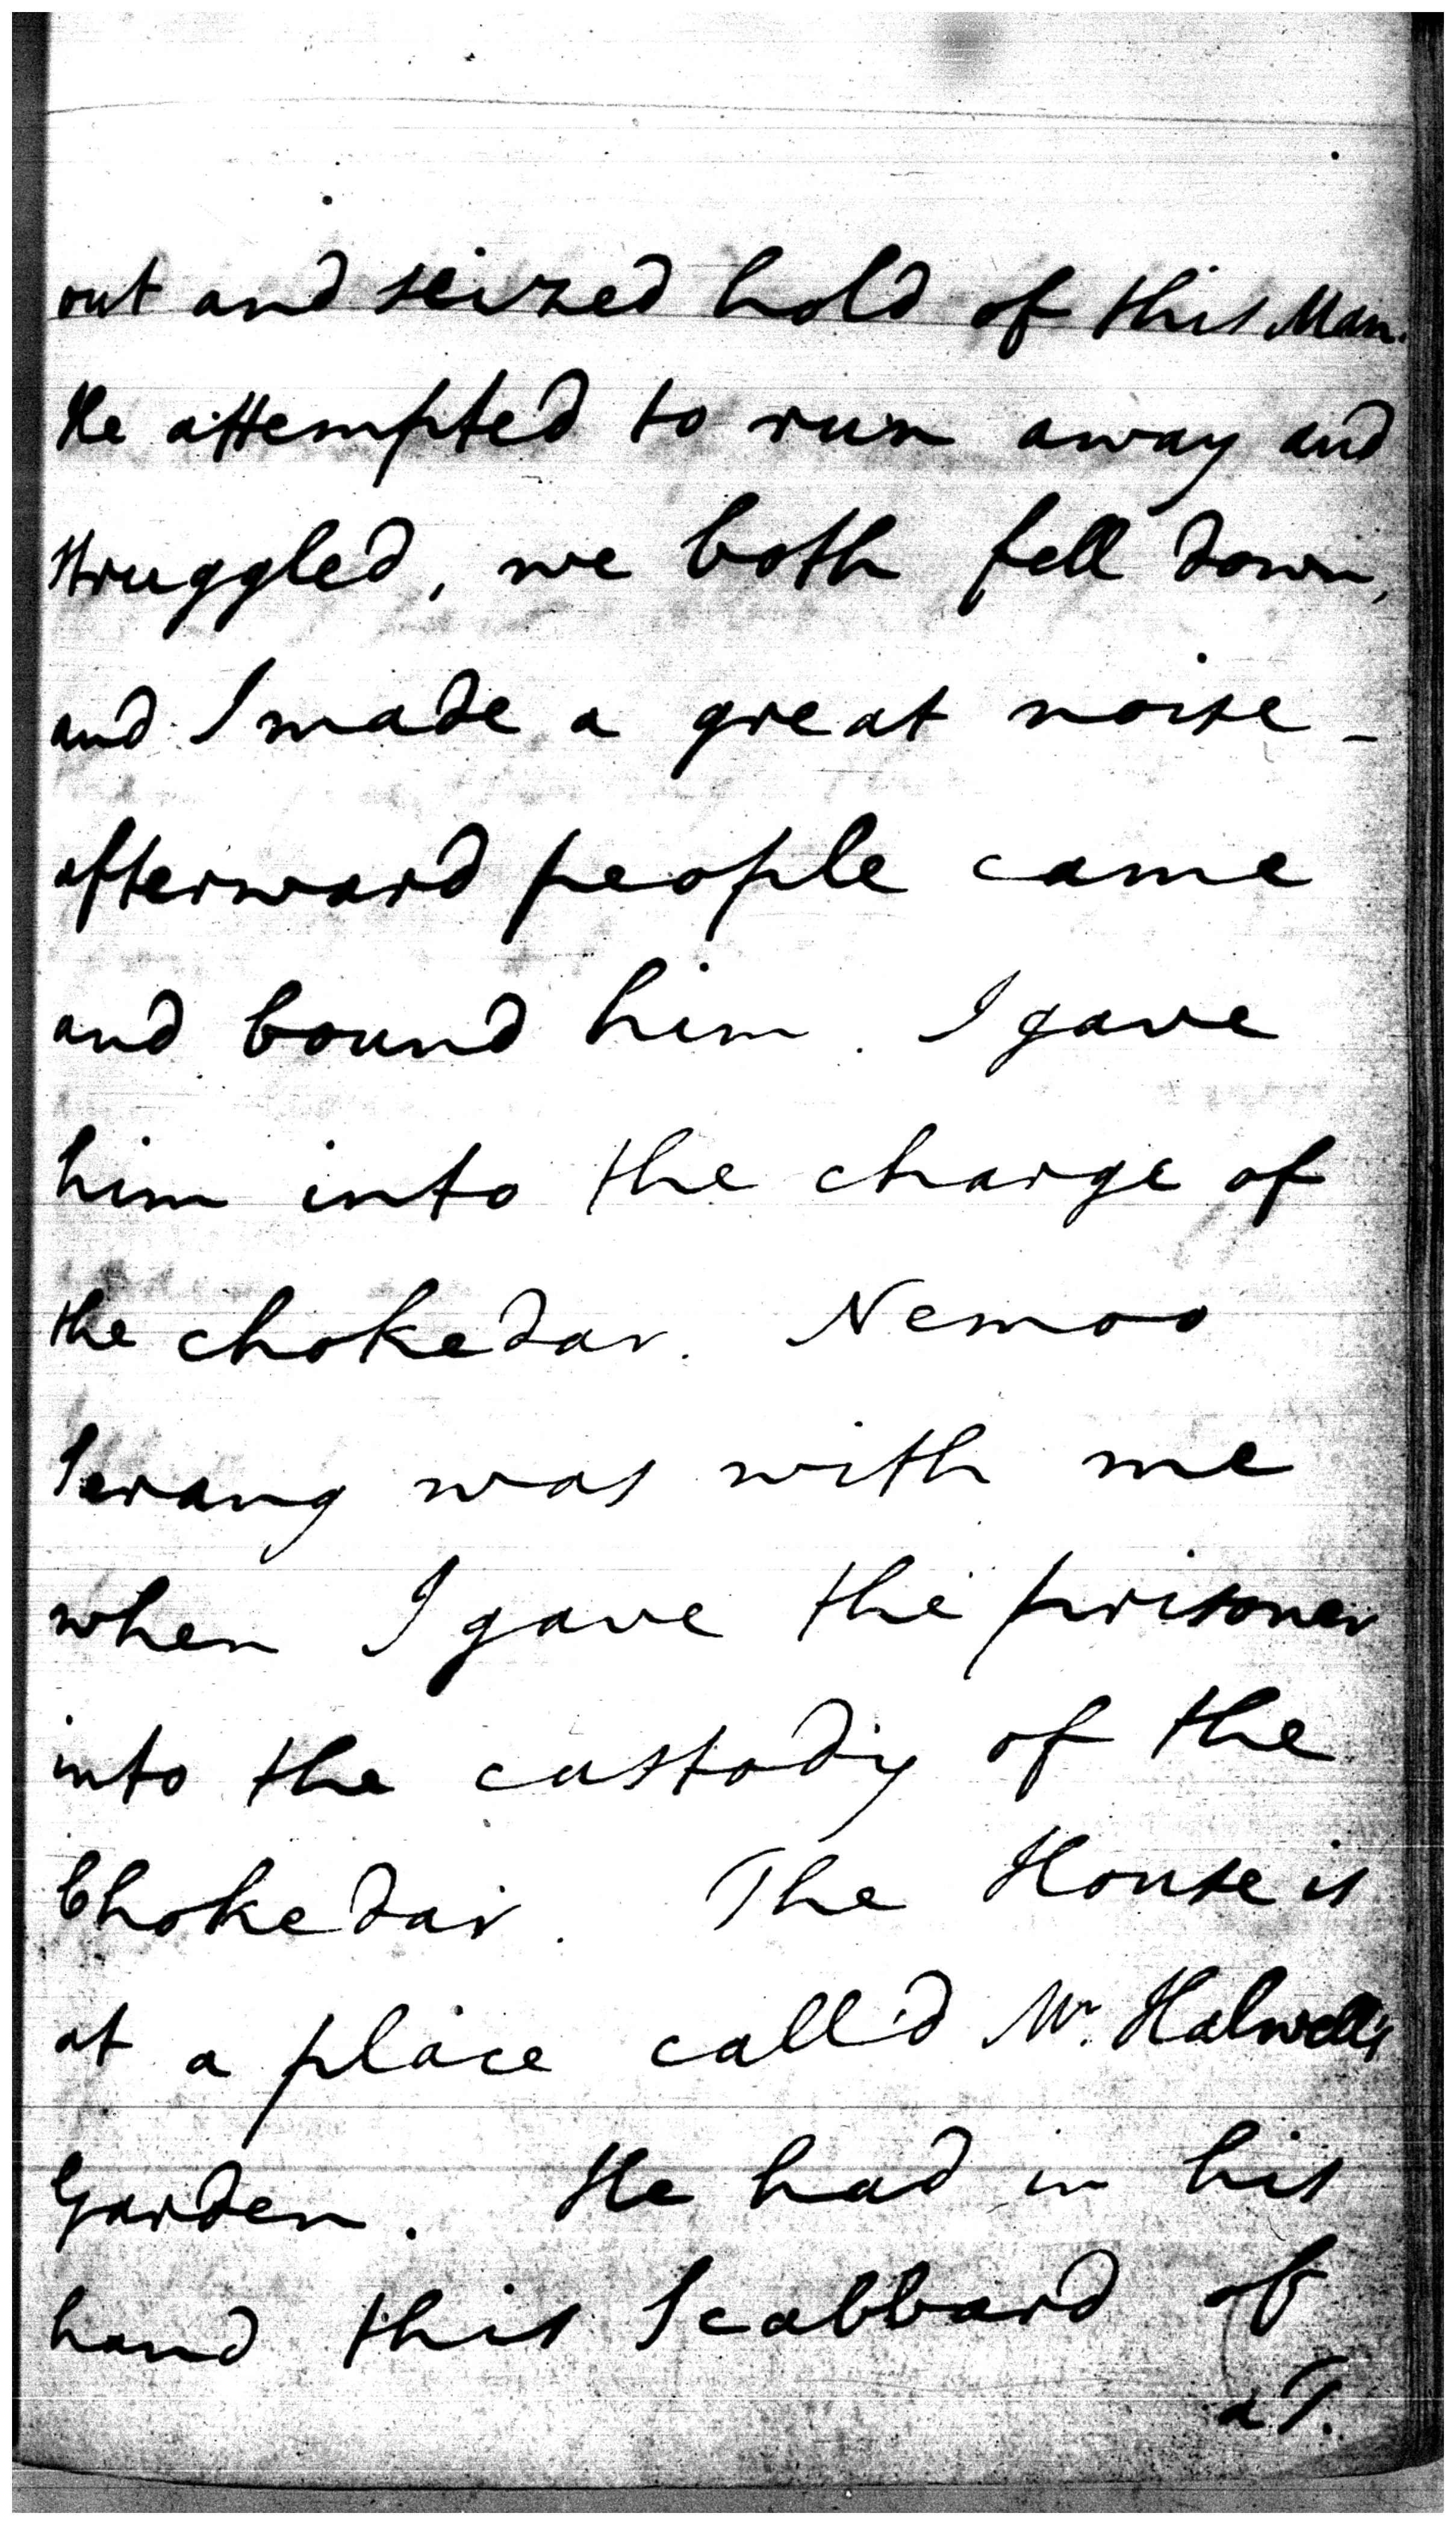 out and seized hold of this Man.
He attempted to run away and
struggled, we both fell down,
and I made a great noise -
afterward people came
and bound him. I gave
him into the charge of
the chokedar. Nemoo
Serang was with me
when I gave the prisoner
into the custody of the
Chokedar. The House is
at a place call'd Mr. Halwell's
Garden. He had in his
hand this Scabbard of
a T.